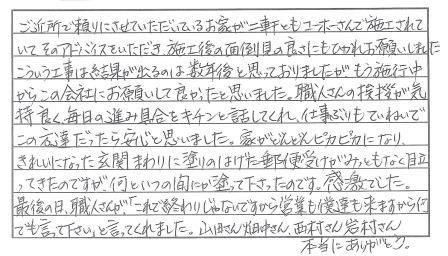 ご近所で頼りにさせていただいているお家が二軒ともコーホーさんで施工されて
いてそのアドバイスをいただき、施工後の面倒見の良さにもひかれお願いしました
こういう工事は結果が出るのは数年後と思っておりましたがもう施行中
からこの会社にお願いして良かったと思いました。職人さんの挨拶が気
持良く、毎日の進み具合をキチンと話してくれ、仕事ぶりもていねいで
この友達だったら安心と思いました。家がどんどんピカピカになり、
きれいになった玄関まわりに塗りのはげた郵便受けがみっともなく目立
ってきたのですが何といつの間にか塗って下さったのです。感激でした。
最後の日、職人さんが「これで終わりじゃないですから営業も僕達も来ますから何
でも言って下さい」と言ってくれました。山田さん畑中さん、西村さん岩村さん
本当にありがとう。